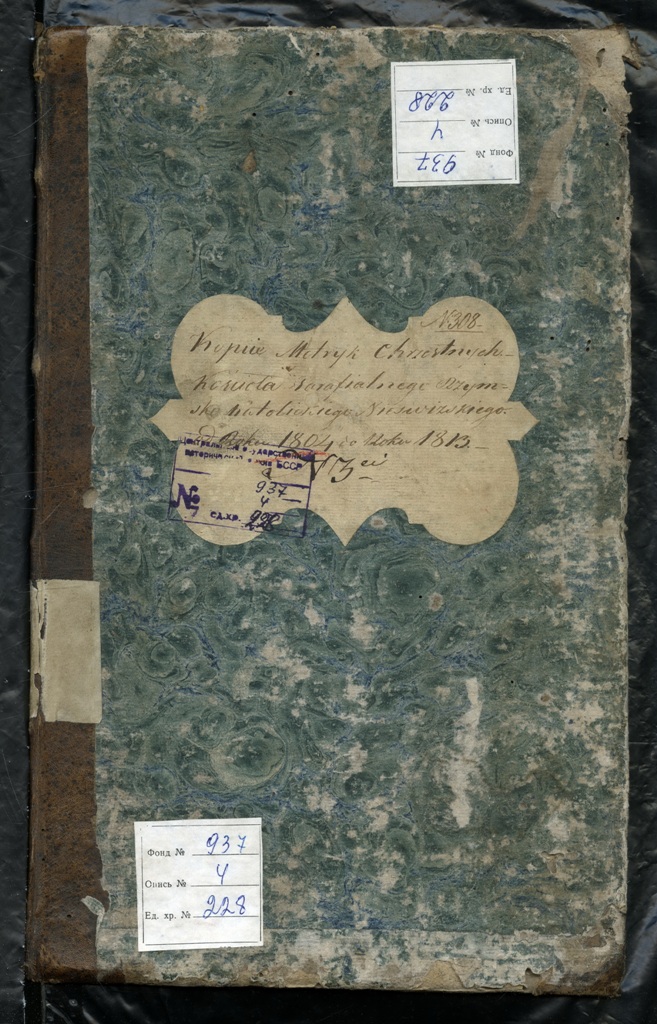 Фонд № 937
Опись № 4
Ед. хр. № 228
N 308.
Kopiie Metryk Chrzestnych
Kościoła Parafialnego Rzym-
sko Katolickiego Nieświżskiego.
od Roku 1804 do Roku 1813.
исторический БССР
937
№ 4
ед.хр. 228
Фонд № 937
Опись № 4
Ед. хр. № 228